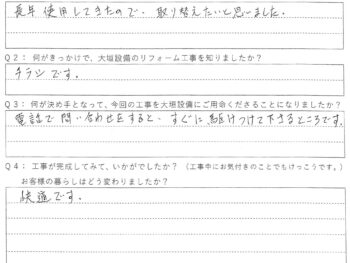 長年使用してきたので、取り替えたいと思いました。
Q2: 何がきっかけで、大垣設備のリフォーム工事を知りましたか?
チラシです。
Q3: 何が決め手となって、今回の工事を大垣設備にご用命くださることになりましたか?
電話で問い合わせをすると、すぐに駆けつけて下さるところです。
Q4: 工事が完成してみて、いかがでしたか? (工事中にお気付きのことでもけっこうです。)
お客様の暮らしはどう変わりましたか?
快適です。